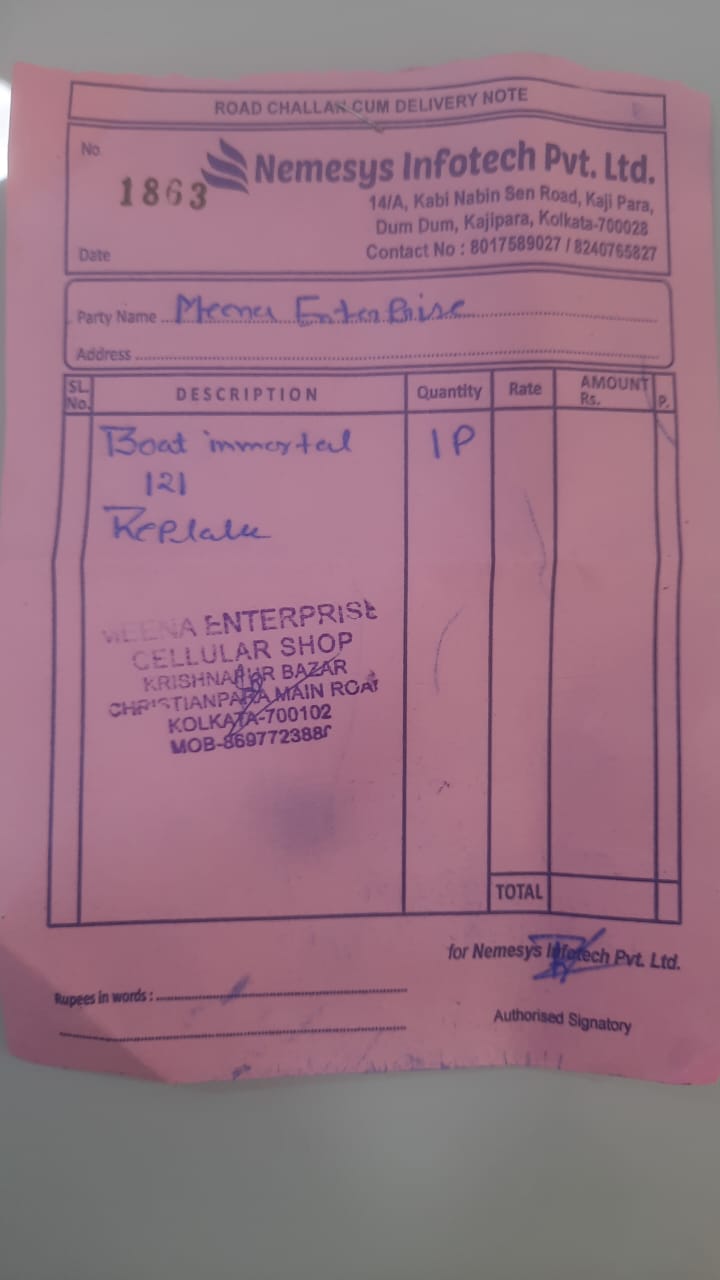 ROAD CHALLAN CUM DELIVERY NOTE
No.
1863
Nemesys Infotech Pvt. Ltd.
14/A, Kabi Nabin Sen Road, Kaji Para,
Dum Dum, Kajipara, Kolkata-700028
Date
Contact No : 8017589027 / 8240765827
Party Name Meena Enterprise
Address
SL. No. DESCRIPTION Quantity Rate AMOUNT Rs. P.
Boat immortal 1P
121
Replace
MEENA ENTERPRISE
CELLULAR SHOP
KRISHNAPUR BAZAR
CHRISTIANPARA MAIN ROAD
KOLKATA-700102
MOB-869772388
TOTAL
for Nemesys Infotech Pvt. Ltd.
Rupees in words :
Authorised Signatory